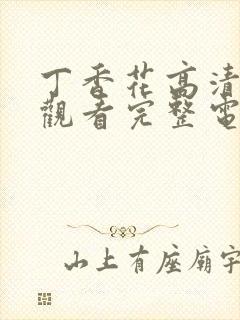 丁香花高清
觀看完整電
山上有座廟宇